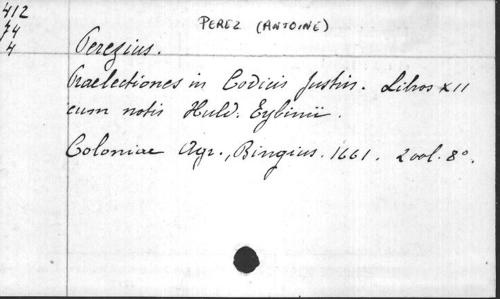 412
74
4
PEREZ (ANTOINE)
Perezius.
Praelectiones in Codicis Justin. Libros XII
cum notis Huld. Eybinii.
Coloniae Agr., Bingius. 1661. 2 vol. 8°.